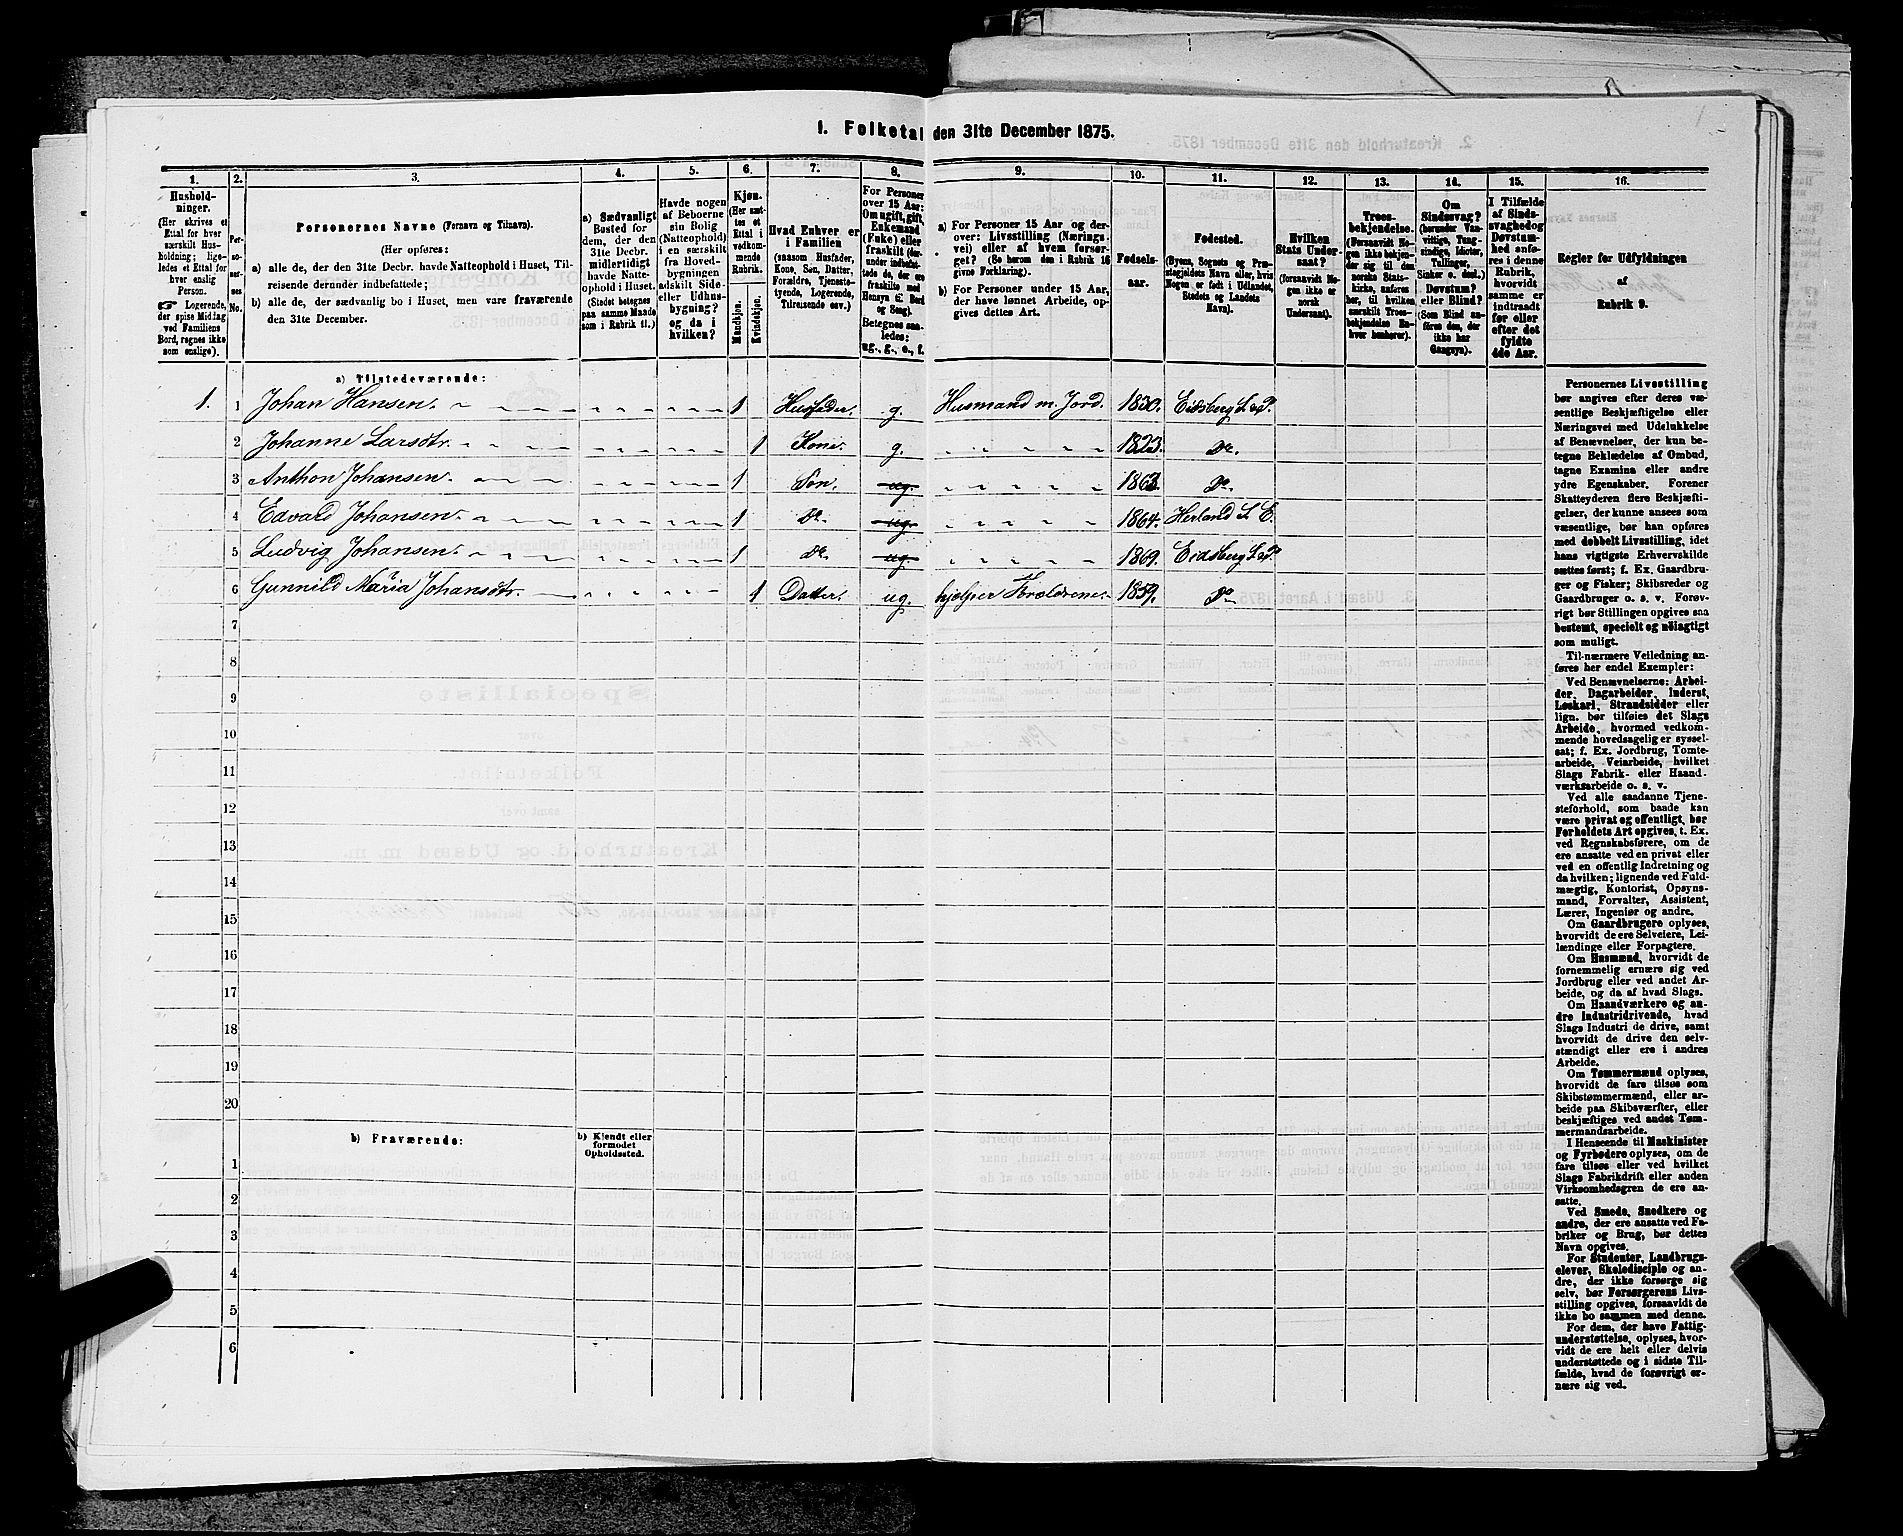 1. Folketal den 31te December 1875.
1.
Hushold-
ninger.
(Her skrives et
Ettal for hver
særskilt Hus-
holdning; lige-
ledes et Ettal for
hver enslig
Person.
Logerende,
der spise Middag
ved Familiens
Bord, regnes ikke
som enslige).
2.
Per-
so-
ner-
nes
No.
3.
Personernes Navne (Fornavn og Tilnavn).
(Her opføres:
a) alle de, der den 31te Decbr. havde Natteophold i Huset, Til-
reisende derunder indbefattede;
b) alle de, der sædvanlig bo i Huset, men vare fraværende
den 31te December.
4.
a) Sædvanligt
Bosted for
dem, der den
31te Decbr.
midlertidigt
havde Natte-
ophold i Huset.
(Stedet betegnes
paa samme Maade
som i Rubrik 11.)
5.
Havde nogen
af Beboerne
sin Bolig
(Natteophold)
i en særskilt
fra Hoved-
bygningen
adskilt Side-
eller Udhus-
bygning?
og da i
hvilken?
6.
Kjøn.
(Her sæt-
tes et
Ettal i
vedkom-
mende
Rubrik.
Mandkjøn.
Kvindekjøn.
7.
Hvad Enhver er
i Familien
(saasom Husfader,
Kone, Søn, Datter,
Forældre, Tjeneste-
tyende, Logerende,
Tilreisende osv.)
8.
For Personer
over 15 Aar:
Om ugift, gift,
Enkemand
(Enke) eller
fraskilt (der-
under indbefat-
tede de, der ere
fraskilte med
Hensyn til Bord
og Seng).
Betegnes saa-
ledes:
ug., g., e., f.
9.
a) For Personer 15 Aar og der-
over: Livsstilling (Nærings-
vei) eller af hvem forsør-
get? (Se herom den i Rubrik 16
givne Forklaring).
b) For Personer under 15 Aar,
der have lønnet Arbeide, op-
gives dettes Art.
10.
Fødsels-
aar.
11.
Fødested.
(Byens, Sognets og Præ-
stegjeldets Navn eller, hvis
Nogen er født i Udlandet,
Stedets og Landets
Navn).
12.
Hvilken
Stats Under-
saat?
(forsaavidt No-
gen ikke er
norsk
Undersaat).
13.
Troes-
bekjendelse.
(Forsaavidt No-
gen ikke bekjen-
der sig til den
norske Stats-
kirke, anføres
her, til hvilken
særskilt Troes-
bekjendelse En-
hver henhører).
14.
Om
Sindssvag?
(herunder Van-
vittige, Tung-
sindige, Idioter,
Tullinger,
Sinker o. desl.)
Døvstum?
eller Blind?
(Som Blind an-
føres den, der
ikke har
Gangsyn).
15.
I Tilfælde
af Sinds-
svaghed og
Døvstum-
hed anfø-
res i denne
Rubrik,
hvorvidt
samme er
indtraadt
før eller
efter det
fyldte
4de Aar.
16.
Regler for Udfyldningen
af
Rubrik 9.
a) Tilstedeværende:
1. 1 Johan Hansen. 1 Husfader. g. Husmand m. Jord. 1830. Eidsberg S. & P.
2 Johanne Larsdtr. 1 Kone. g. 1823. Do.
3 Anthon Johansen. 1 Søn. ug. 1863. Do
4 Edvard Johansen. 1 Do. ug. 1864. Herland S. E.
5 Ludvig Johansen. 1 Do. ug. 1869. Eidsberg S. & P.
6 Gunnild Maria Johansdtr. 1 Datter. ug. hjelper Forældrene. 1859. Do
7
8
9
10
11
12
13
14
15
16
17
18
19
20
b) Fraværende:
b) Kjendt eller
formodet
Opholdssted.
1
2
3
4
5
6
Personernes Livsstilling
bør angives efter deres væ-
sentlige Beskjæftigelse eller
Næringsvei med Udelukkelse
af Benævnelser, der kun be-
tegne Beklædelse af Ombud,
tagne Examina eller andre
ydre Egenskaber. Forener
Skatteyderen flere Beskjæfti-
gelser, der kunne ansees som
væsentlige, bør han opføres
med dobbelt Livsstilling, idet
hans vigtigste Erhvervskilde
sættes først; f. Ex. Gaardbru-
ger og Fisker; Skibsreder og
Gaardbruger o. s. v. Forøv-
rigt bør Stillingen opgives saa
bestemt, specielt og nöiagtigt
som muligt.
Til nærmere Veiledning an-
føres her endel Exempler:
Ved Benævnelserne: Arbei-
der, Dagarbeider, Inderst,
Løskarl, Strandsidder eller
lign. bør tilføies det Slags
Arbeide, hvormed vedkom-
mende hovedsagelig er syssel-
sat; f. Ex. Jordbrug, Tomte-
arbeide, Veiarbeide, hvilket
Slags Fabrik- eller Haand-
værksarbeide o. s. v.
Ved alle saadanne Tjene-
steforhold, som baade kan
være privat og offentligt, bør
Forholdets Art opgives, t. Ex.
ved Regnskabsførere, om de
ere ansatte ved en privat eller
ved en offentlig Indretning og
da hvilken; lignende ved Fuld-
mægtig, Kontorist, Opsyns-
mand, Forvalter, Assistent,
Lærer, Ingeniør og andre.
Om Gaardbrugere oplyses,
hvorvidt de ere Selveiere, Lei-
lændinge eller Forpagtere.
Om Husmænd, hvorvidt de
fornemmelig ernære sig ved
Jordbrug eller ved andet Ar-
beide, og da af hvad Slags.
Om Haandværkere og an-
dre Industridrivende, hvad
Slags Industri de drive, samt
hvorvidt de drive den selv-
stændigt eller ere i andres
Arbeide.
Om Tømmermænd oplyses,
hvorvidt de fare tilsøs som
Skibstømmermænd, eller ar-
beide paa Skibsværfter, eller
beskjæftiges ved andet Tøm-
mermandsarbeide.
I Henseende til Maskinister
og Fyrbødere oplyses, om de
fare tilsøs eller ved hvilket
Slags Fabrikdrift eller anden
Virksomhedsgren de ere an-
satte.
Ved Smede, Snedkere og
andre, der ere ansatte ved Fa-
briker og Brug, bør dettes
Navn opgives.
For Studenter, Landbrugs-
elever, Skoledisciple og an-
dre, der ikke forsørge sig
selv, bør Forsørgerens Livs-
stilling opgives, forsaavidt de
ikke bo sammen med denne.
For dem, der have Fattig-
understøttelse, oplyses, hvor-
vidt de ere helt eller delvis
understøttede og i sidste Til-
fælde, hvad de forøvrigt er-
nære sig ved.